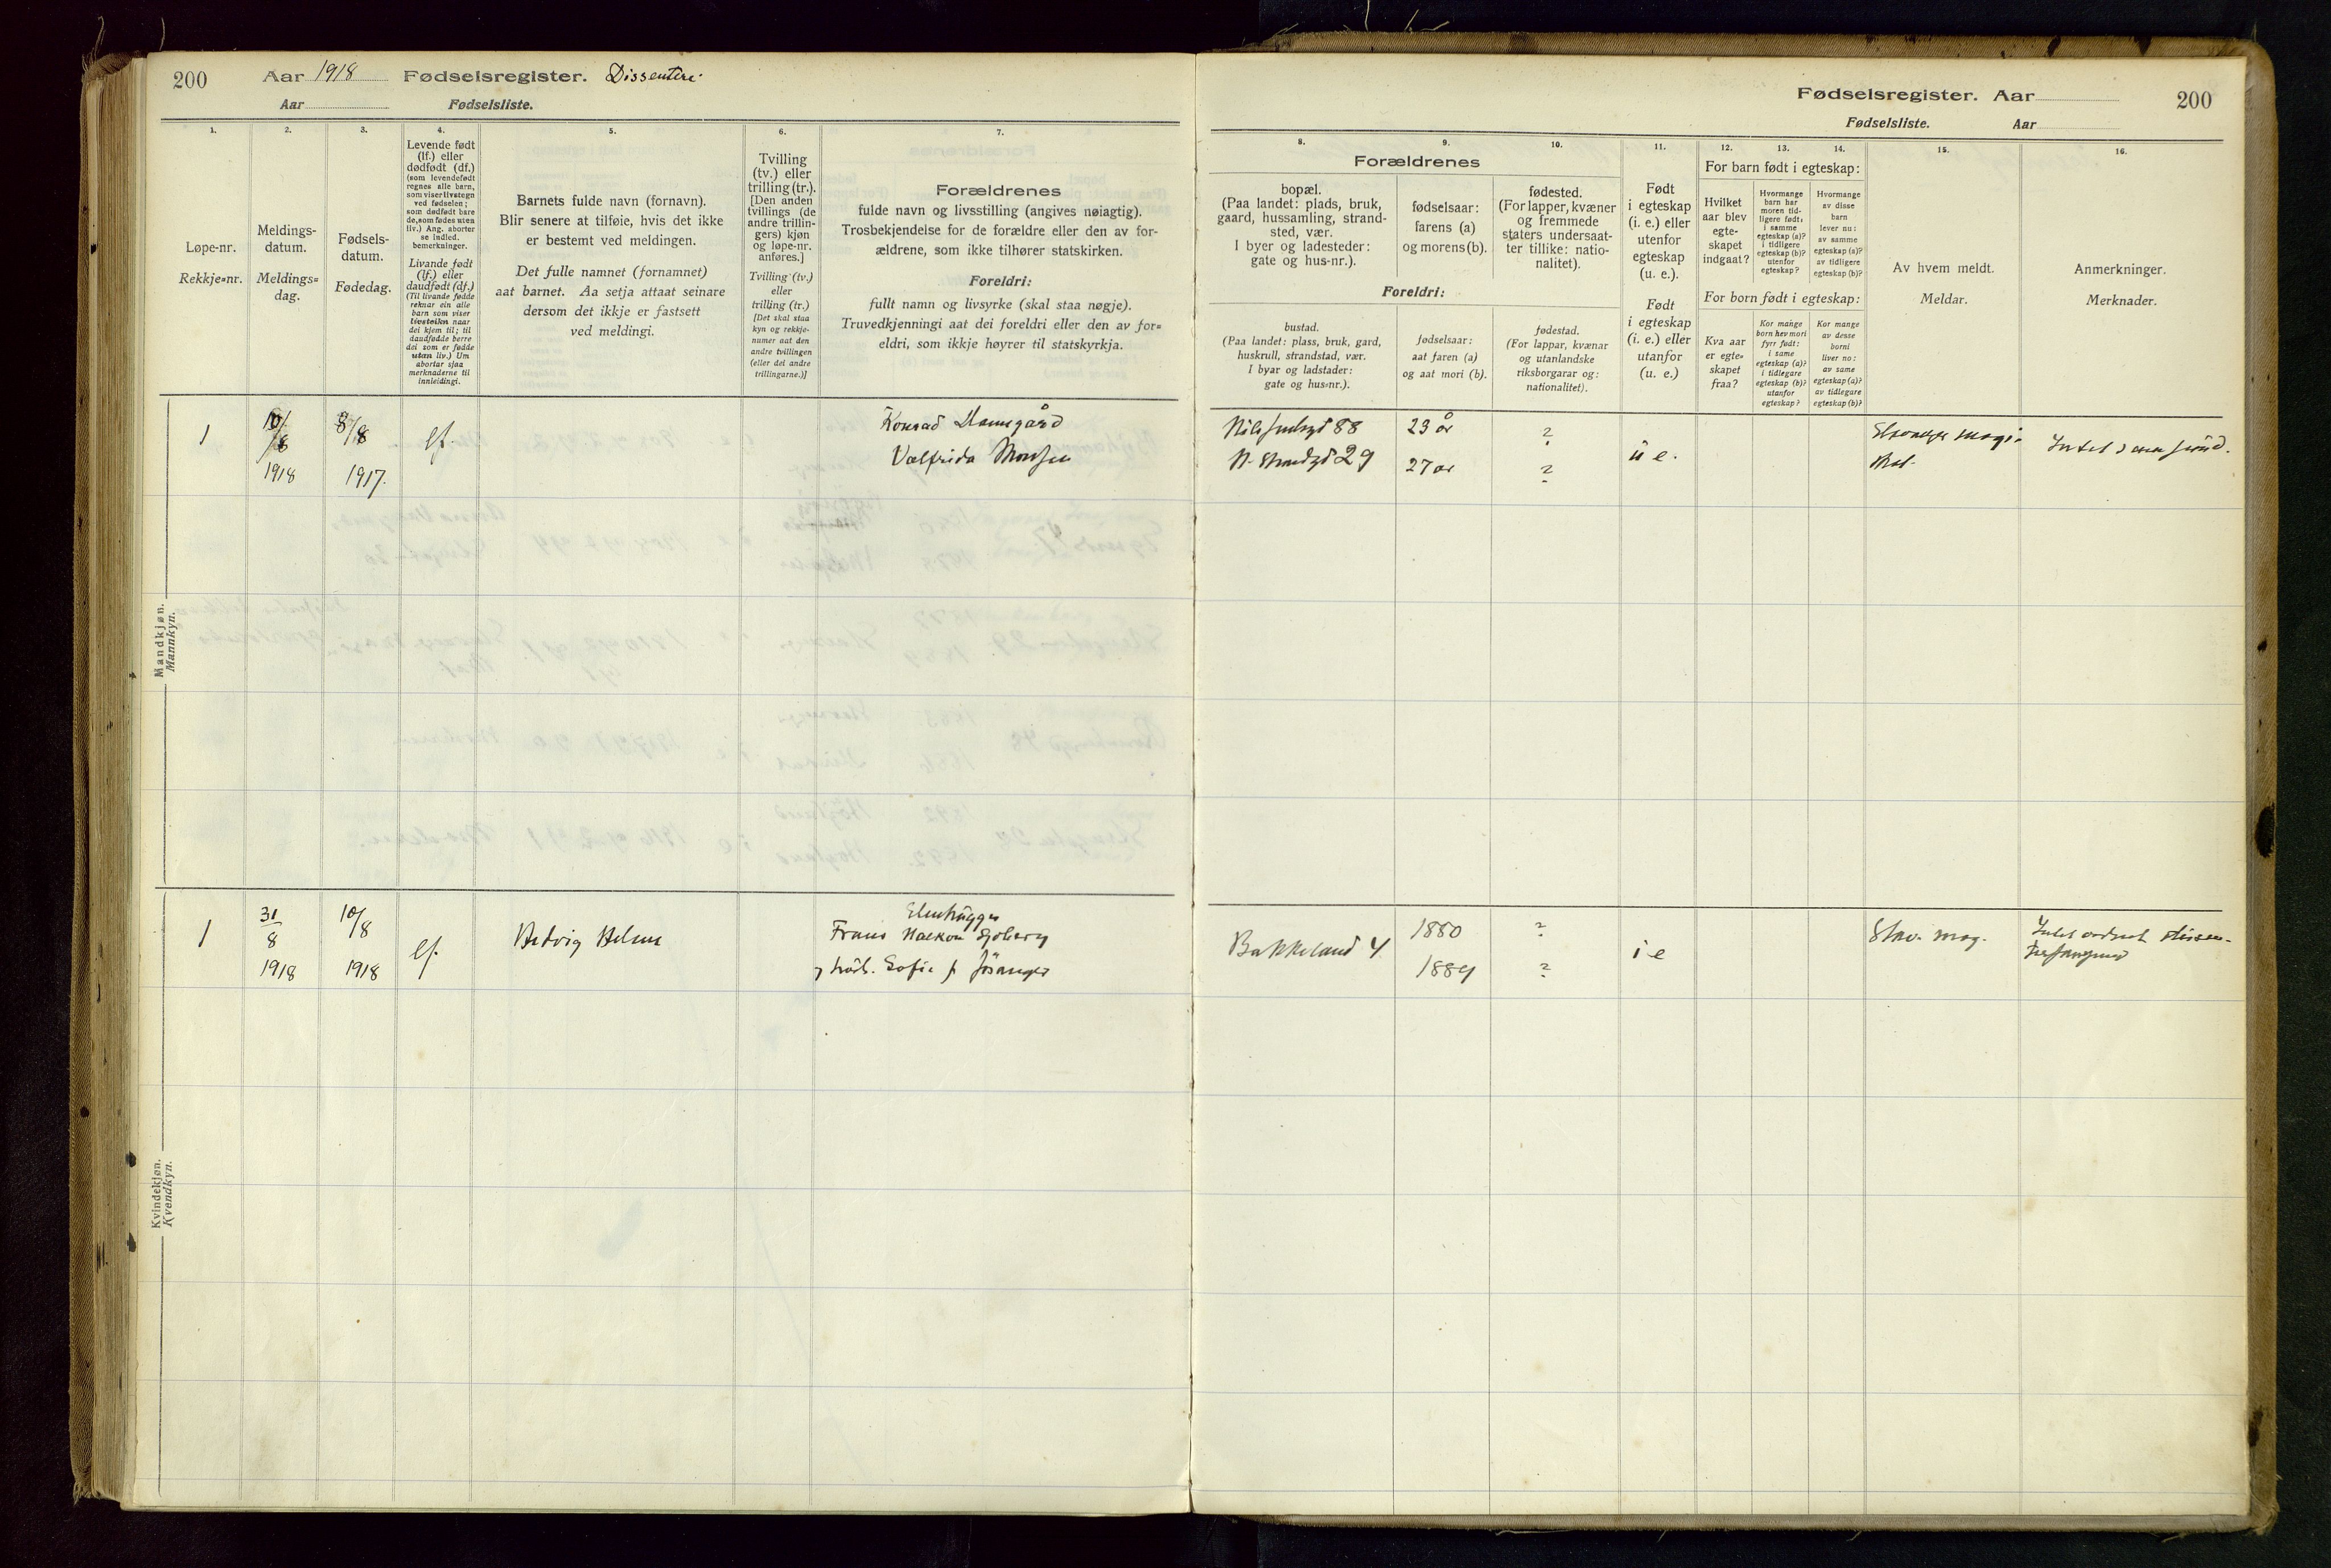 200 Aar 1918 Fødselsregister. Dissentere
Aar Fødselsliste.
1.
2.
3.
4.
5.
6.
7.
Løpe-nr.
Rekkje-nr.
Meldings-
datum.
Meldings-
dag.
Fødsels-
datum.
Fødedag.
Levende født
(lf.) eller
dødfødt (df.)
(som levendefødt
regnes alle barn,
som viser livstegn
ved fødselen;
som dødfødt bare
de, som fødes uten
liv.) Ang. aborter
se indled.
bemerkninger.
Livande født
(lf.) eller
daudfødt (df.)
(Til livande fødde
reknar ein alle
barn som viser
livsteikn naar
dei kjem til; til
daudfødde berre
dei som er fødde
utan liv.) Um
abortar sjaa
merknaderne til
innleidingi.
Barnets fulde navn (fornavn).
Blir senere at tilføie, hvis det ikke
er bestemt ved meldingen.
Det fulle namnet (fornamnet)
aat barnet. Aa setja attaat seinare
dersom det ikkje er fastsett
ved meldingi.
Tvilling
(tv.) eller
trilling (tr.).
[Den anden
tvillings (de
andre trillin-
gers) kjøn
og løpe-nr.
anføres.]
Tvilling (tv.)
eller
trilling (tr.)
[Det skal staa
kyn og rekkje-
numer aat den
andre tvillingen
(eller dei andre
trillingarne.)]
Forældrenes
fulde navn og livsstilling (angives nøiagtig).
Trosbekjendelse for de forældre eller den av for-
ældrene, som ikke tilhører statskirken.
Foreldri:
fullt namn og livsyrke (skal staa nøgje).
Truvedkjenningi aat dei foreldri eller den av for-
eldri, som ikkje høyrer til statskyrkja.
Mandkjøn.
Mannkyn.
1
10/8
1918
8/8
1917.
lf.
Konrad
Valfrida Monsen
Kvindekjøn.
Kvendkyn.
1
31
8
1918
10/8
1918
lf.
Hedvig Helene
Frans Haakon Sjøberg
Sofie
Fødselsregister. Aar 200
Fødselsliste. Aar
8.
9.
10.
11.
12.
13.
14.
15.
16.
Forældrenes
bopæl.
(Paa landet: plads, bruk,
gaard, hussamling, strand-
sted, vær.
I byer og ladesteder:
gate og hus-nr.).
fødselsaar:
farens (a)
og morens (b).
fødested.
(For lapper, kvæner
og fremmede
staters undersaat-
ter tillike: natio-
nalitet).
Foreldri:
bustad.
(Paa landet: plass, bruk, gard,
huskrull, strandstad, vær.
I byar og ladstader:
gate og hus-nr.).
fødselsaar:
aat faren (a)
og aat mori (b).
fødestad.
(For lappar, kvænar
og utanlandske
riksborgarar og:
nationalitet).
Født
i egteskap
(i. e.) eller
utenfor
egteskap
(u. e.).
Født
i egteskap
(i. e.) eller
utanfor
(u. e.)
For barn født i egteskap:
Hvilket
aar blev
egte-
skapet
indgaat?
Hvormange
barn har
moren tid-
ligere født:
i samme
egteskap (a)?
i tidligere
egteskap (b)?
utenfor
egteskap?
Hvormange
av disse
barn
lever nu:
av samme
egteskap (a)?
av tidligere
egteskap (b)?
For born født i egteskap:
Kva aar
er egte-
skapet
fraa?
Kor mange
born hev mori
fyrr født:
i same
egteskap (a)?
i tidlegare
egteskap (b)?
utanfor
egteskap?
Kor mange
av desse
borni
liver no:
av same
egteskap (a)?
av tidlegare
egteskap (b)?
Av hvem meldt.
Meldar.
Anmerkninger.
Merknader.
88
29
23 år
27 år
?
?
u e.
Bakkeland 4
1880
1889
?
?
i e
Stav. mag.